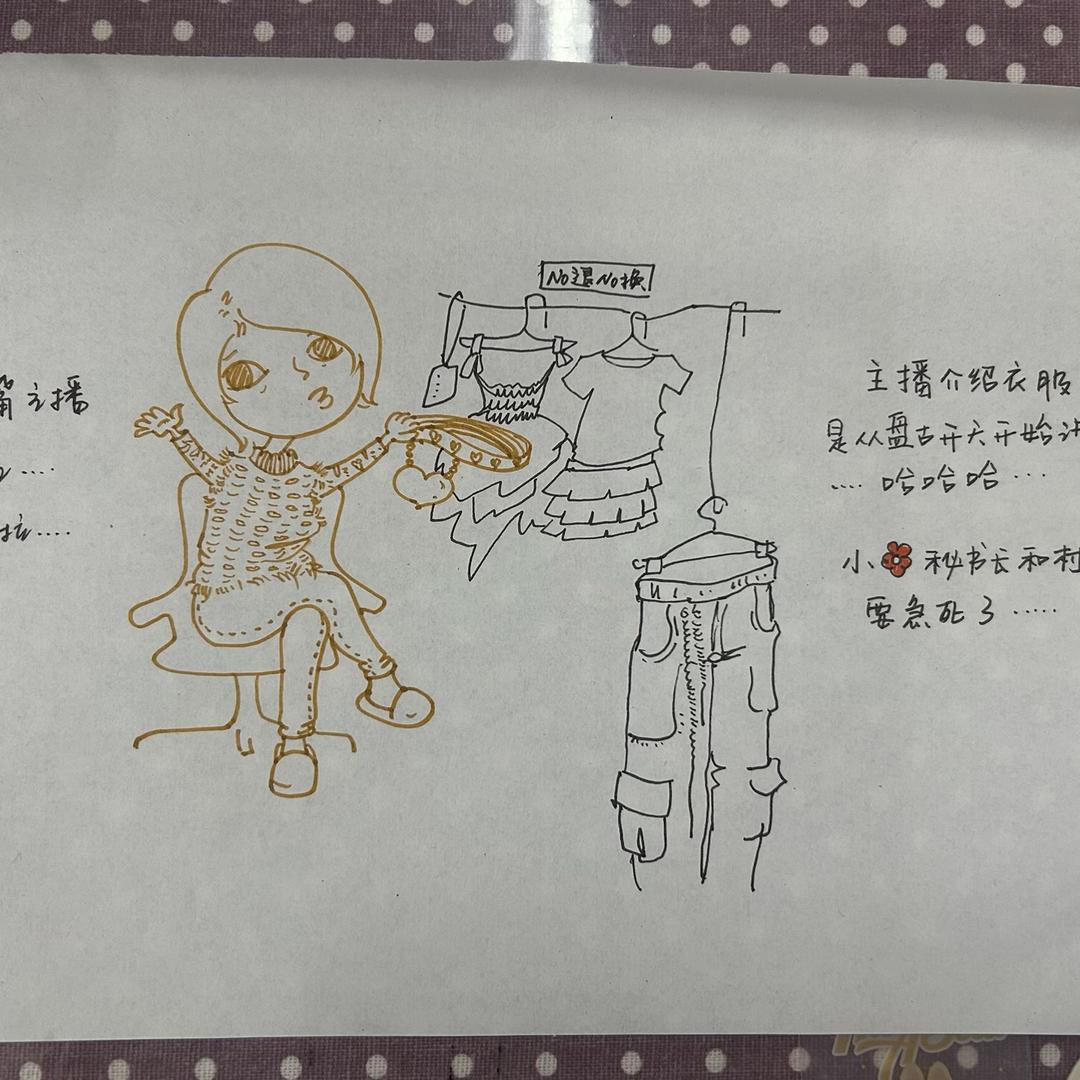 No退No换
主播
....
....
主播介绍衣服
是从盘古开天开始讲
.... 哈哈哈...
小秘书长和村
要急死了.....